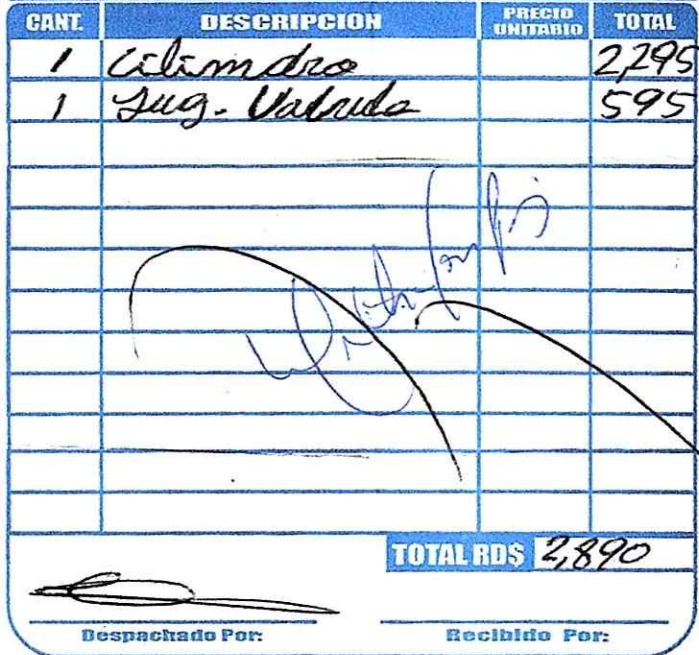 CANT. DESCRIPCION PRECIO UNITARIO TOTAL
1 Cilimdro 2,295
1 Jug. Valvula 595
TOTAL RD$ 2,890
Despachado Por: Recibido Por: